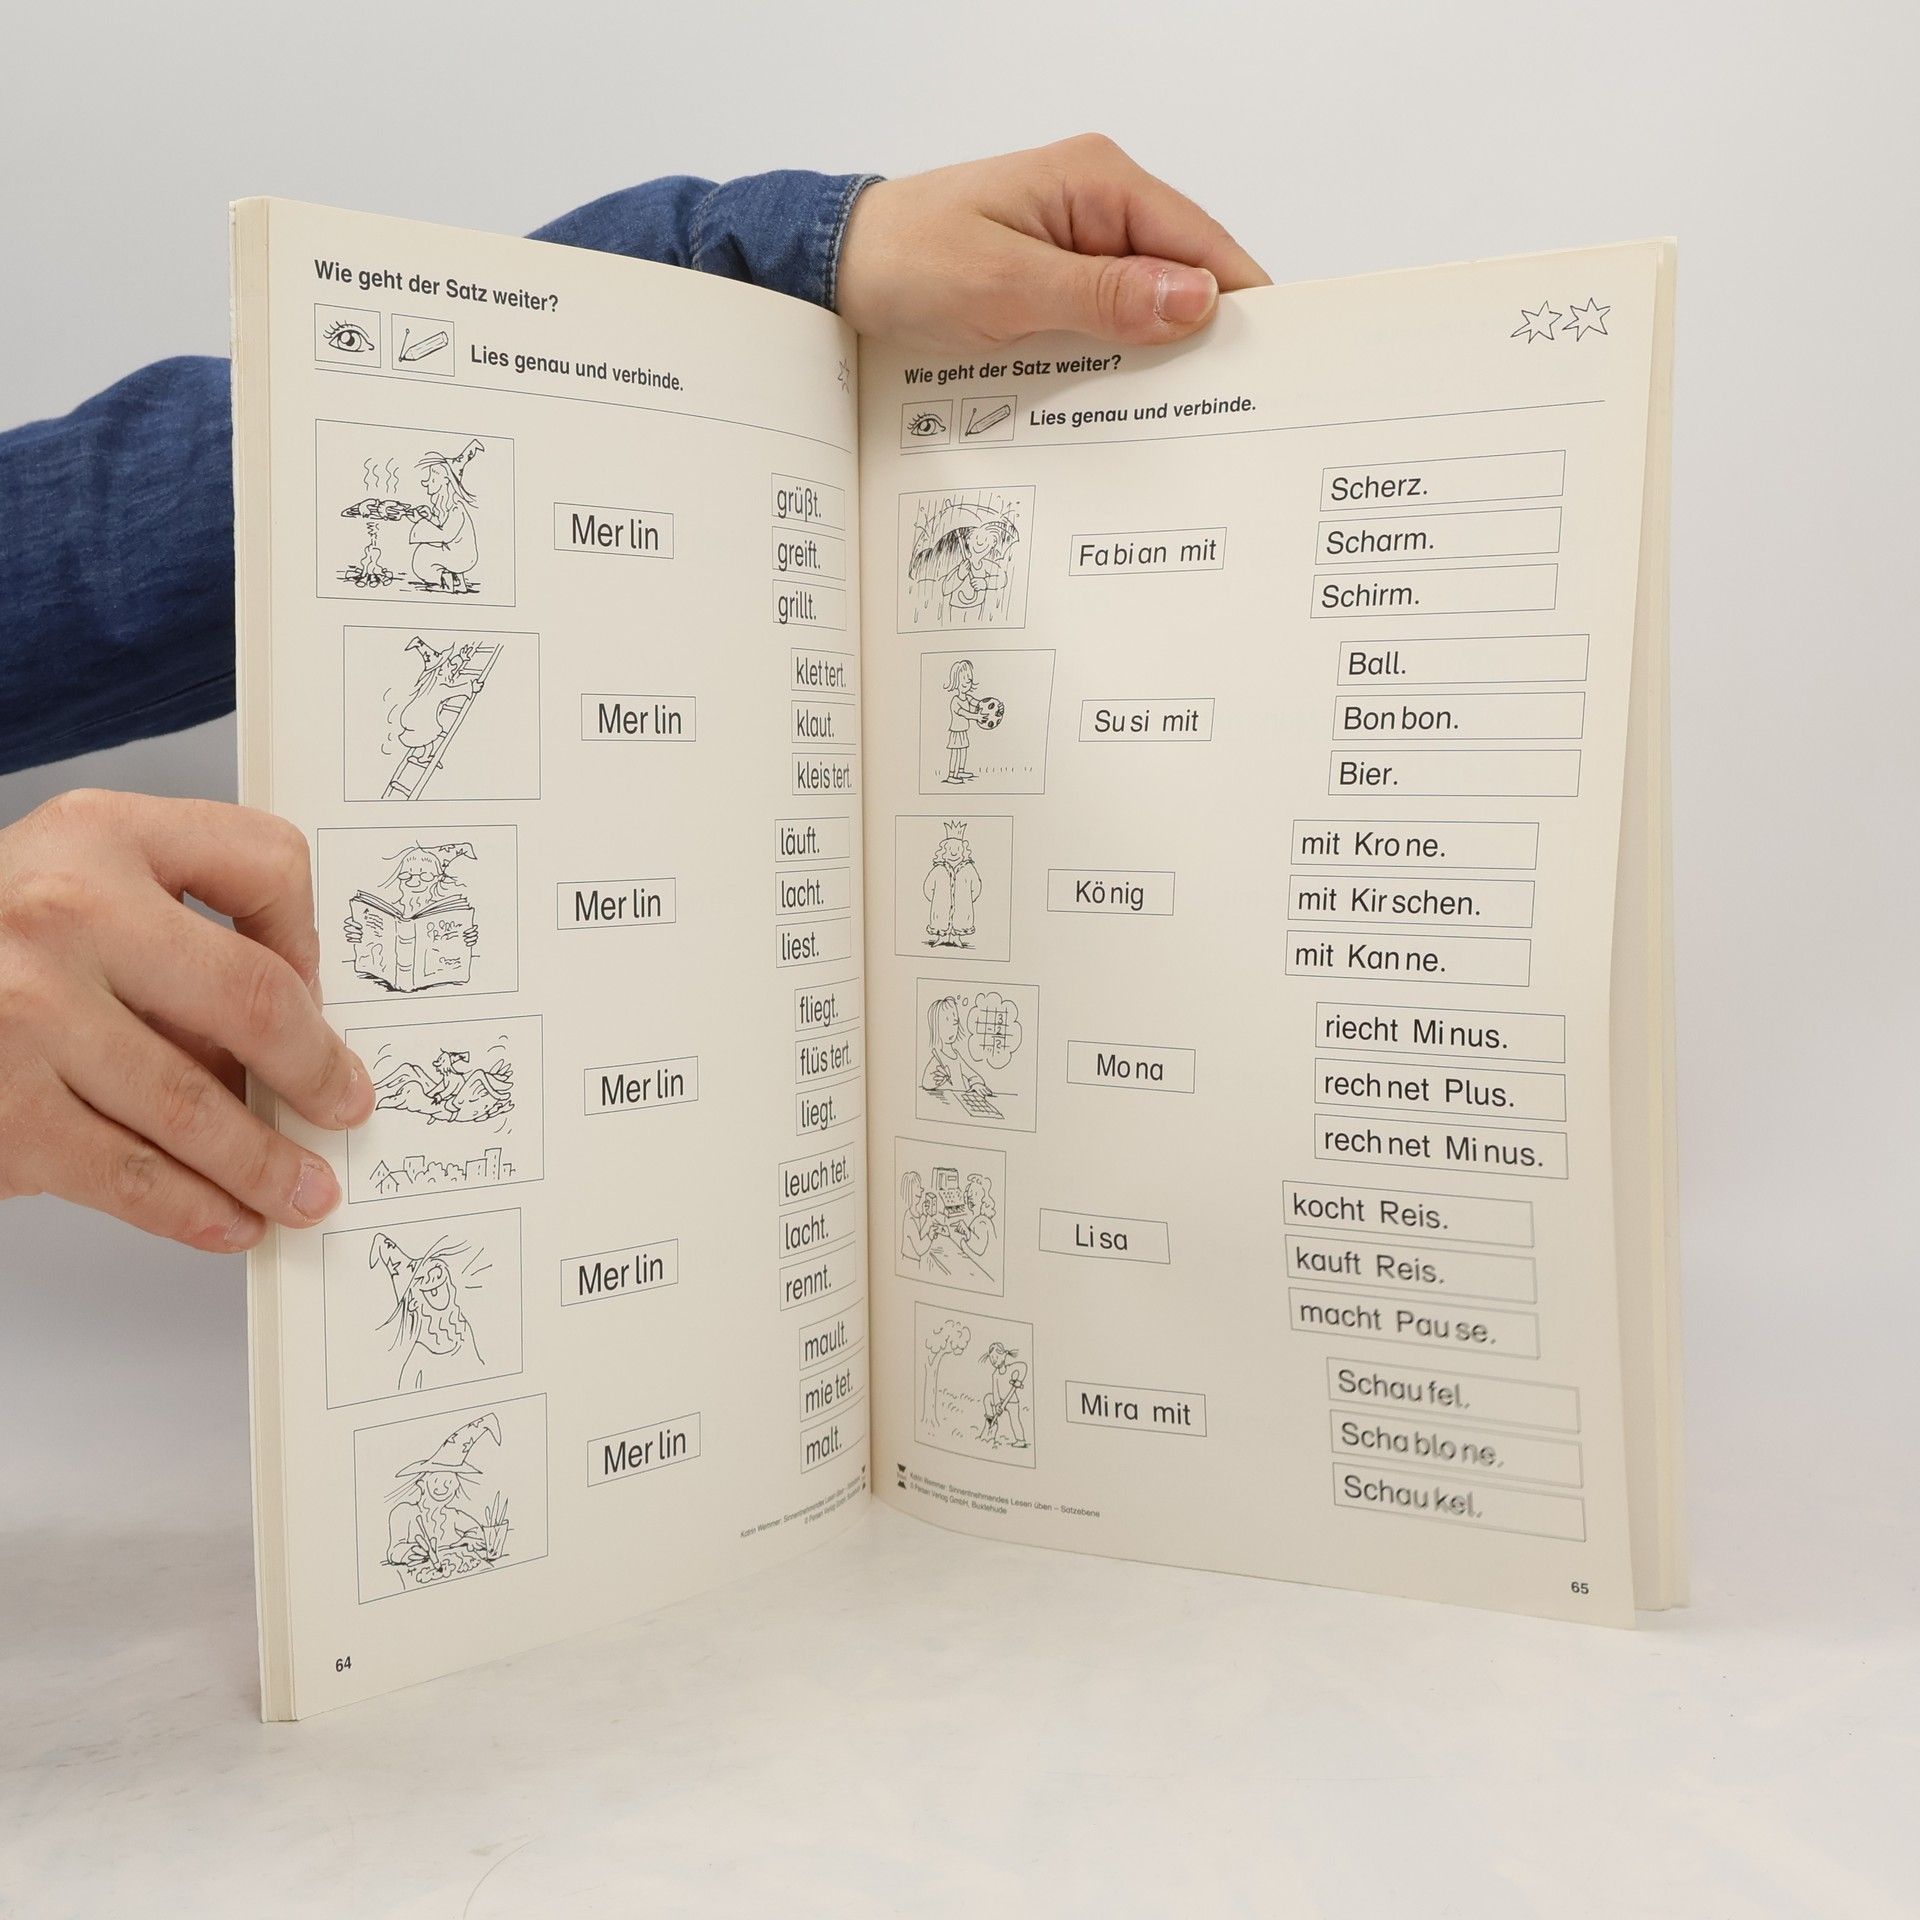 Wie geht der Satz weiter?
Lies genau und verbinde.
Mer lin
grüßt.
greift.
grillt.
Mer lin
klet tert.
klaut.
kleis tert.
Mer lin
läuft.
lacht.
liest.
Mer lin
fliegt.
flüs tert.
liegt.
Mer lin
leuch tet.
lacht.
rennt.
Mer lin
mault.
mie tet.
malt.
Katrin Wemmer: Sinnentnehmendes Lesen üben – Satzebene
© Persen Verlag GmbH, Buxtehude
64
Wie geht der Satz weiter?
Lies genau und verbinde.
Fa bi an mit
Scherz.
Scharm.
Schirm.
Su si mit
Ball.
Bon bon.
Bier.
Kö nig
mit Kro ne.
mit Kir schen.
mit Kan ne.
Mo na
riecht Mi nus.
rech net Plus.
rech net Mi nus.
Li sa
kocht Reis.
kauft Reis.
macht Pau se.
Mi ra mit
Schau fel.
Scha blo ne.
Schau kel.
Katrin Wemmer: Sinnentnehmendes Lesen üben – Satzebene
© Persen Verlag GmbH, Buxtehude
65